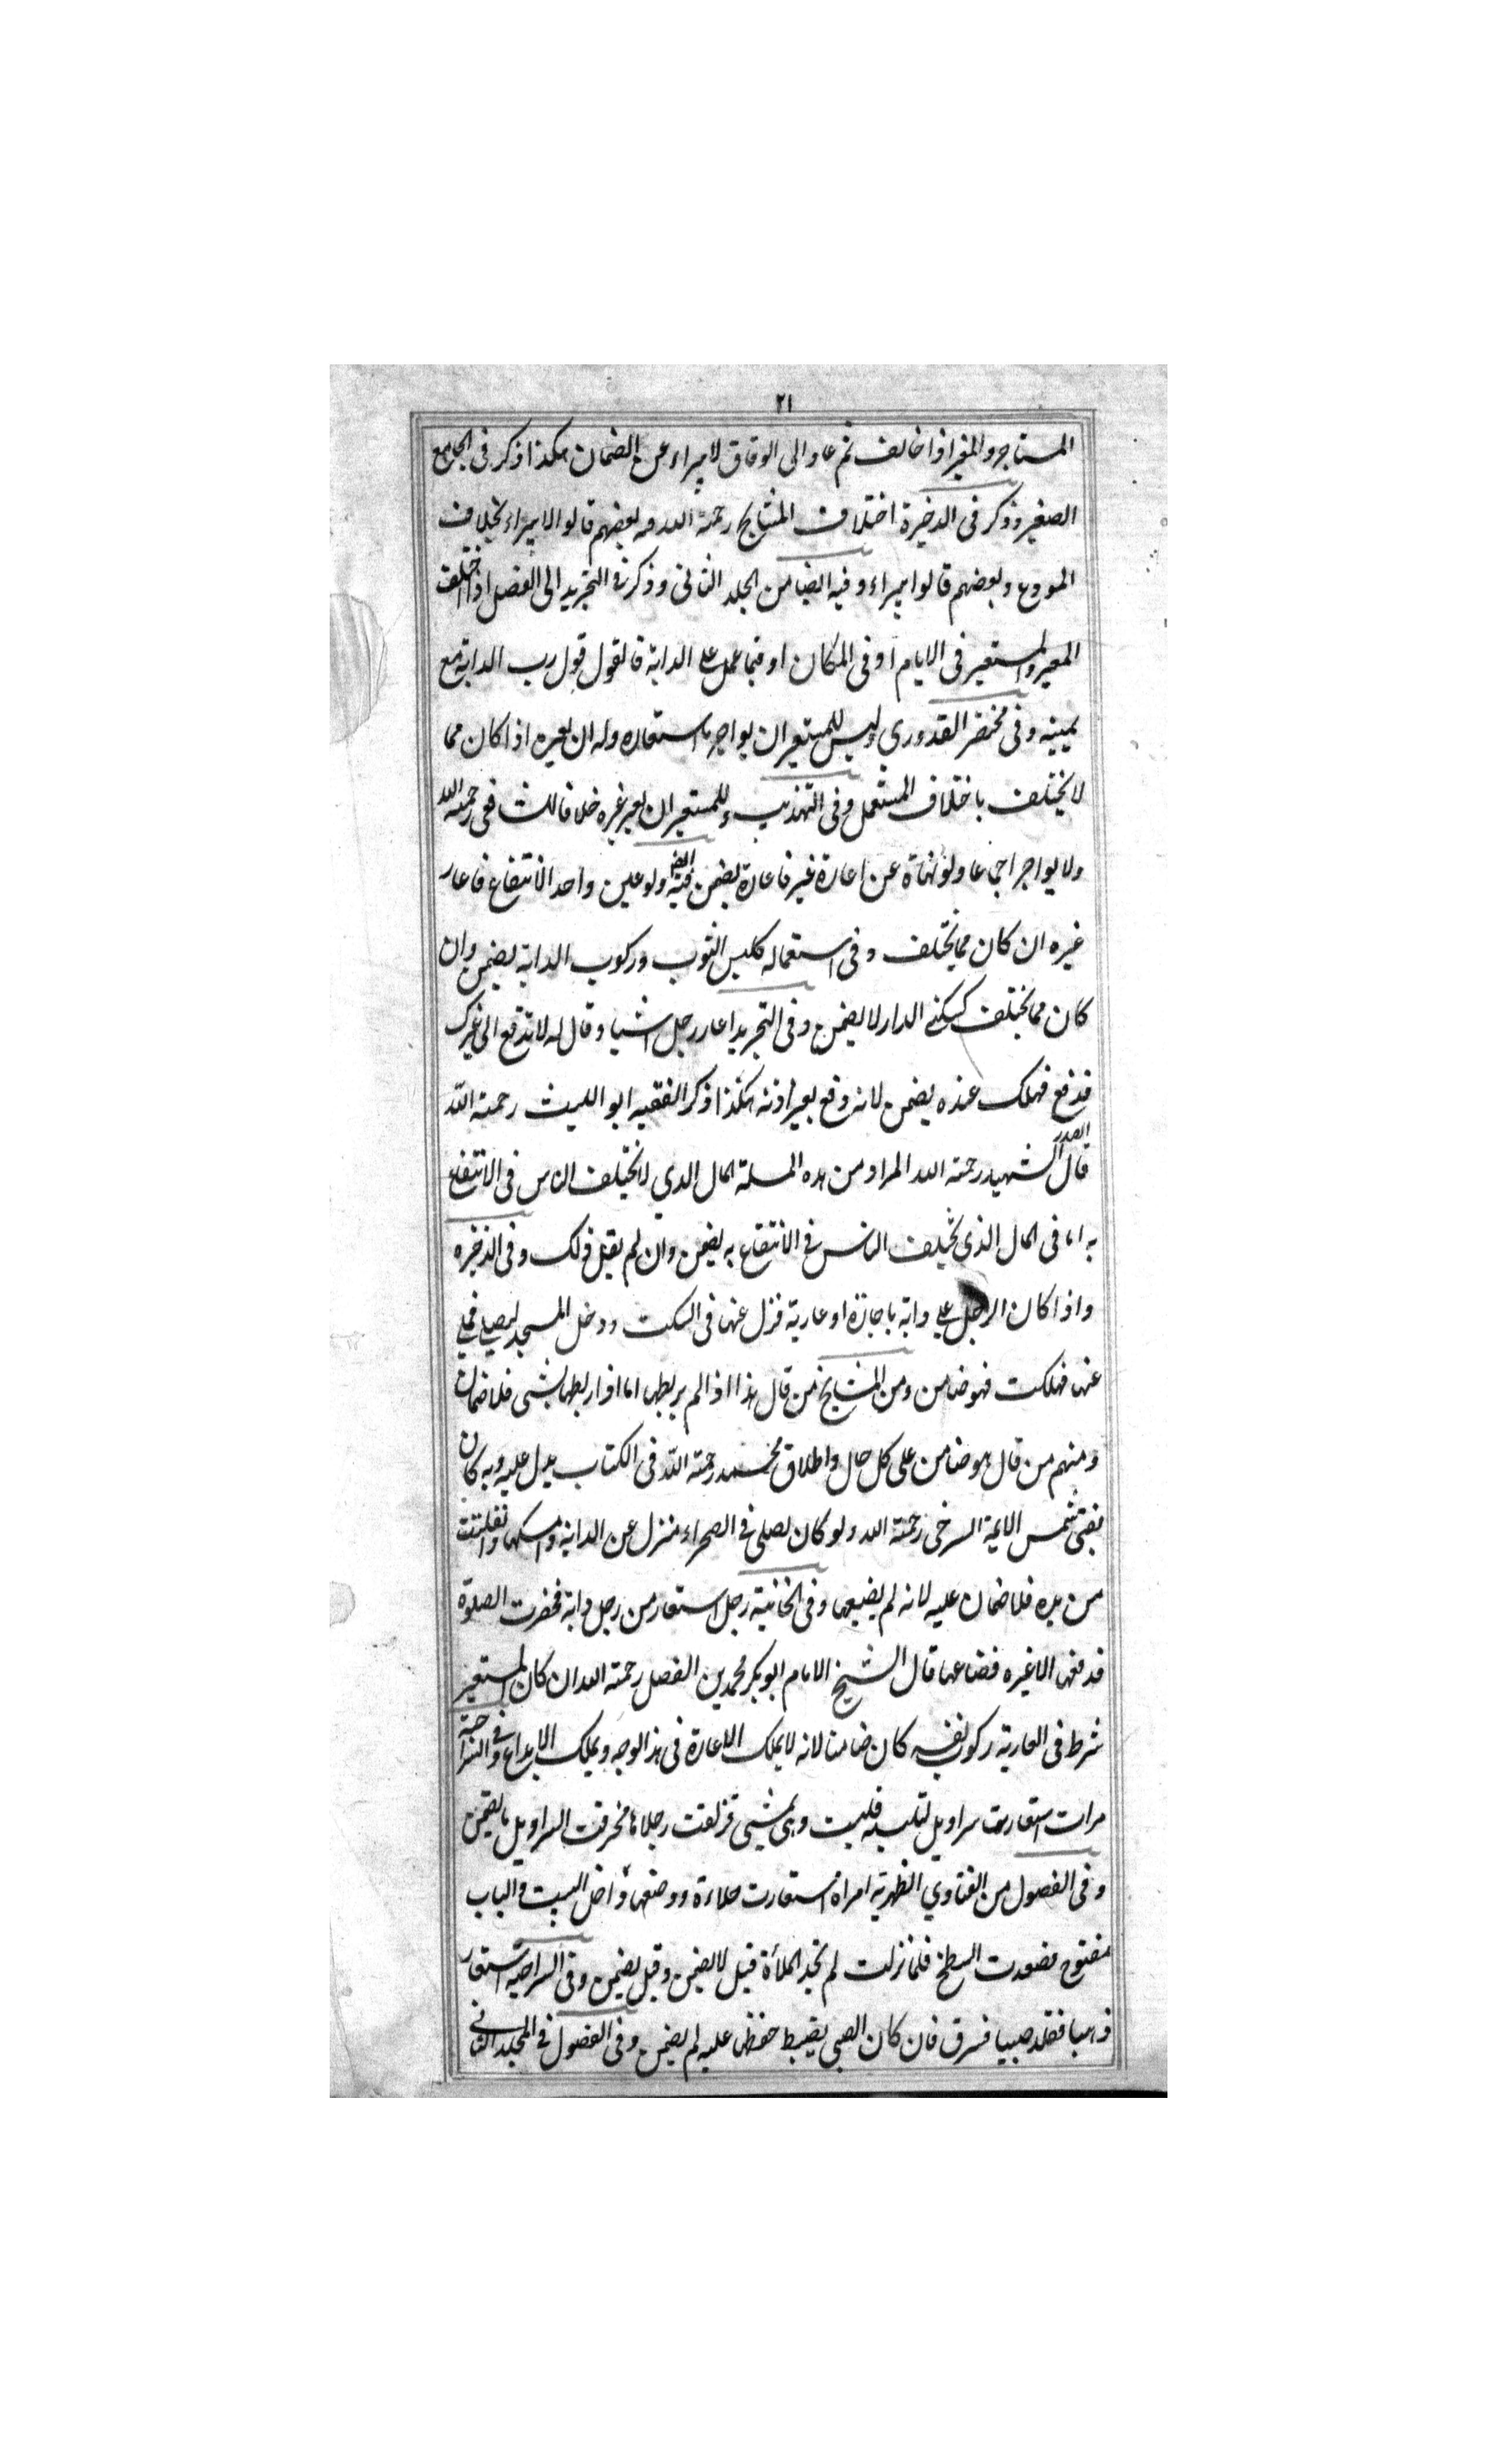 ٢١
المستاجر والمغير اذا خالف ثم عاد الى الوفاق لا يبراء عن الضمان هكذا ذكر فى الجامع
الصغير وذكر فى الذخيرة اختلاف المشايخ رحمة الله و بعضهم قالوا لا يبراء بخلاف
المودع وبعضهم قالوا يبراء وفيه ايضا من الجلد الثانى وذكر فى التجريد الى الفضل اذا اختلف
المعير والمستعير فى الايام او فى المكان او فيما عمل على الدابة فالقول قول رب الدابة مع
يمينه وفى مختصر القدوري وليس للمستعير ان يواجر ما استعاره وله ان يعيره اذا كان مما
لا يختلف باختلاف المستعمل وفى التهذيب وللمستعير ان يعير غيره خلافا للشافعى رحمة الله
ولا يواجر اجماعا ولو نهاه عن اعارة غير فاعاره يضمن وفيه ايضا ولو عين واحد الانتفاع فاعار
غيره ان كان مما يختلف وفى استعماله كلبس الثوب وركوب الدابة يضمن وان
كان مما يختلف كسكنى الدار لا يضمن وفى التجريد اعار رجل شيا وقال له لا تدفع الى غيرك
فدفع فهلك عنده يضمن لانه دفع بغير اذنه هكذا ذكر الفقيه ابو الليث رحمة الله
قال الصدر الشهيد رحمة الله المراد من هذه المسلة المال الذي لا يختلف الناس فى الانتفاع
به اما فى المال الذى يختلف الناس فى الانتفاع به يضمن وان لم يقل ذلك وفى الذخيره
واذا كان الرجل على دابة باجازة او عارية فنزل عنها فى السكت ودخل المسجد ليصلى فخلى
عنها فهلكت فهو ضامن ومن المشايخ من قال هذا اذا لم يربطها اما اذا ربطها بشى فلا ضمان
ومنهم من قال هو ضامن على كل حال واطلاق محمد رحمة الله فى الكتاب يدل عليه وبه كان
يفتى شمس الايمة السرخسى رحمة الله ولو كان يصلى فى الصحراء فنزل عن الدابة وامسكها وانفلتت
من يده فلا ضمان عليه لانه لم يضيعها وفى الخانية رجل استعار من رجل دابة فحضرت الصلوة
فدفعها الا غيره فضاعها قال الشيخ الامام ابو بكر محمد بن الفضل رحمة الله ان كان المستعير
شرط فى العارية ركوب نفسه كان ضامنا لانه لا يملك الاعارة فى هذا الوجه ويملك الايداع وفى السراجية
مرات استعارت سراويل لتلبسه فلبست وهى تمشى فزلقت رجلاها فخرقت السراويل لا يضمن
وفى الفصول من الفتاوي الظهرية امراة استعارت ملاءة ووضعتها داخل البيت والباب
مفتوح فصعدت السطح فلما نزلت لم تجد الملأة قيل لا يضمن وقيل يضمن وفى السراجية استعار
ذهبا فقلد صبيا فسرق فان كان الصبى يضبط حفظ عليه لم يضمن وفى الفصول فى المجلد الثانى